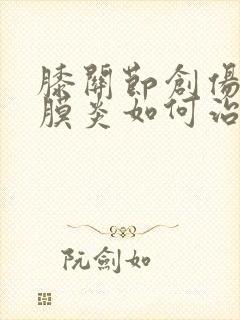 膝關節創傷
膜炎如何治
阮劍如